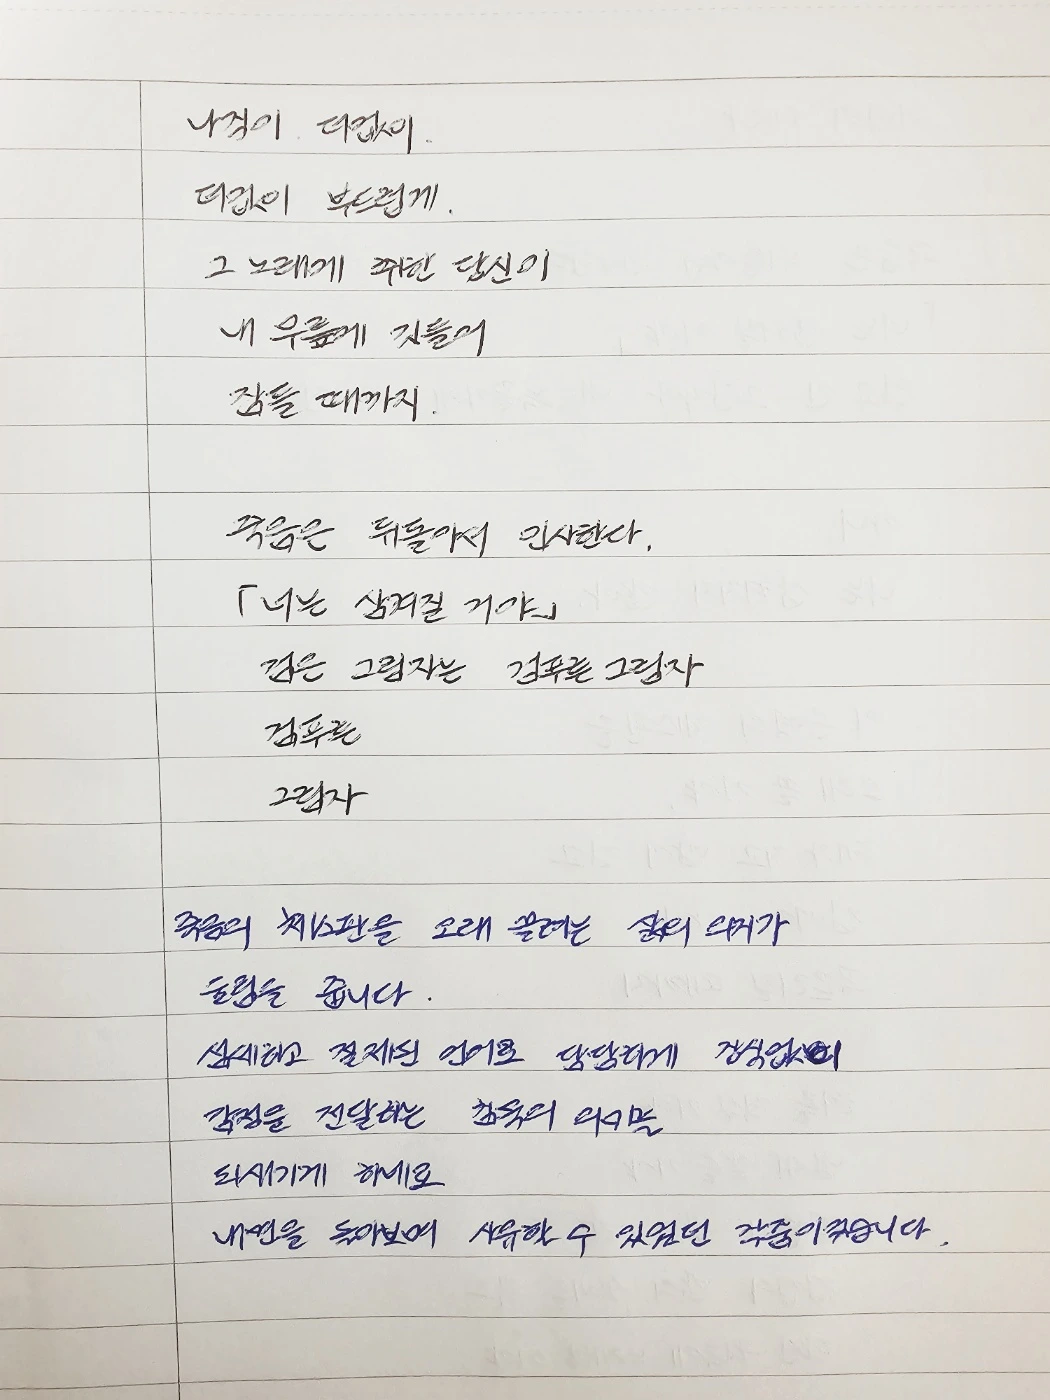 나직이 더없이.
더없이 부드럽게.
그 노래에 취한 당신이
내 무릎에 깃들어
잠들 때까지.
죽음은 뒤돌아서 인사한다.
「너는 삼켜질 거야」
검은 그림자는 검푸른 그림자
검푸른
그림자
죽음의 을 오래 끌려는 삶의 의지가
울림을 줍니다.
섬세하고 절제된 언어로 담담하게 장식없이
감정을 전달하는 침묵의 의미를
되새기게 하네요
내면을 돌아보며 사유할 수 있었던 작품이었습니다.